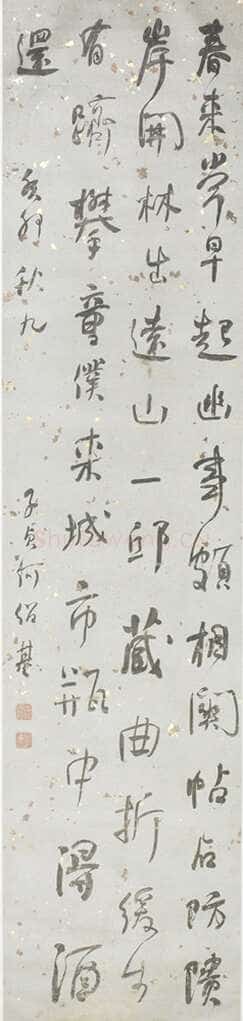 春来常早起幽事頗相関帖石防隤
岸開林出遠山一邱蔵曲折緩步
有躋攀童僕来城市瓶中得酒
還
癸卯秋九
子貞何紹基